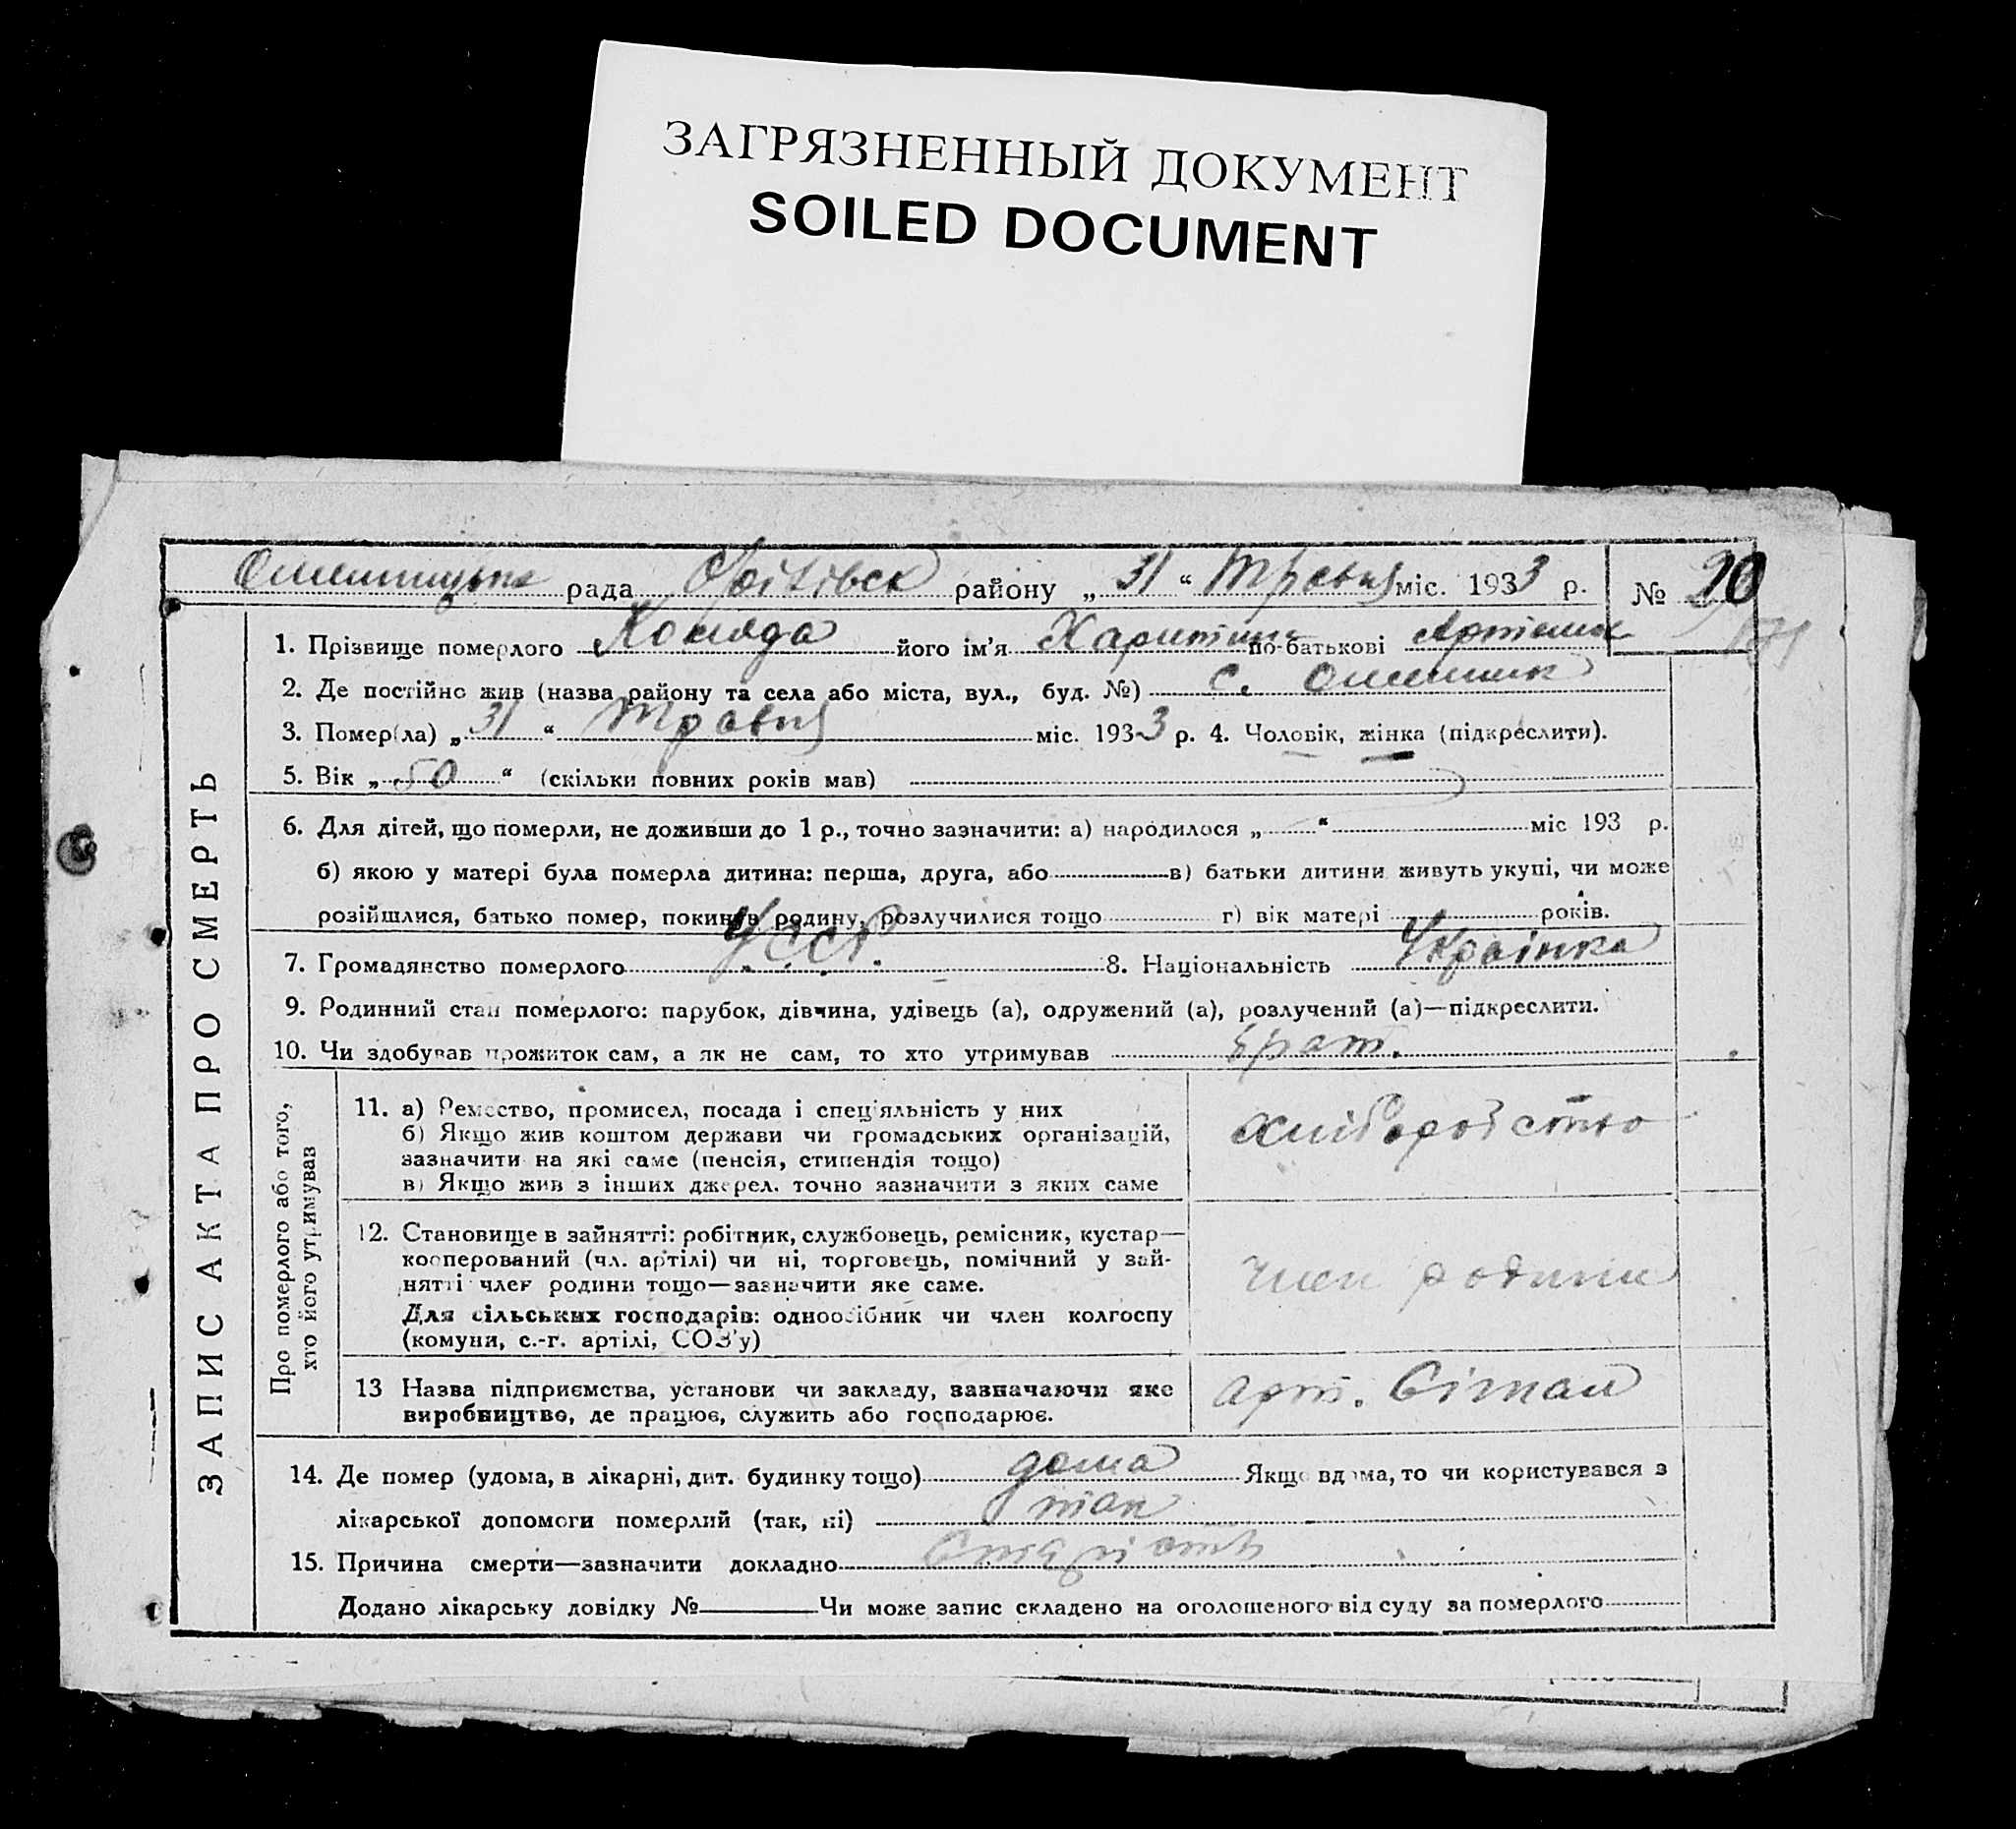 ЗАГРЯЗНЕННЫЙ ДОКУМЕНТ
SOILED DOCUMENT
рада район у „ 31 “ Травня міс. 1933 р. № 20
ЗАПИС АКТА ПРО СМЕРТЬ
1. Прізвище померлого Коляда його ім'я Харитина по-батькові
2. Де постійно жив (назва району та села або міста, вул., буд. №) с.
3. Помер(ла) „ 31 “ Травня міс. 1933 р. 4. Чоловік, жінка (підкреслити).
5. Вік „ 50 “ (скільки повних років мав)
6. Для дітей, що померли, не доживши до 1 р., точно зазначити: а) народилося „ “ міс 193 р.
б) якою у матері була померла дитина: перша, друга, або в) батьки дитини живуть укупі, чи може
розійшлися, батько помер, покинув родину, розлучилися тощо г) вік матері років.
7. Громадянство померлого УССР. 8. Національність Українка
9. Родинний стан померлого: парубок, дівчина, удівець (а), одружений (а), розлучений (а)—підкреслити.
10. Чи здобував прожиток сам, а як не сам, то хто утримував брат.
Про померлого або того, хто його утримував
11. а) Ремество, промисел, посада і спец'яльність у них
б) Якщо жив коштом держави чи громадських організацій,
зазначити на які саме (пенсія, стипендія тощо)
в) Якщо жив з інших джерел. точно зазначити з яких саме
хліборобство
12. Становище в зайнятті: робітник, службовець, ремісник, кустар—
кооперований (чл. артілі) чи ні, торговець, помічний у зай-
нятті член родини тощо—зазначити яке саме.
Для сільських господарів: одноосібник чи член колгоспу
(комуни, с.-г. артілі, СОЗ'у)
член родини
13 Назва підприємства, установи чи закладу, зазначаючи яке
виробництво, де працює, служить або господарює.
арт.
14. Де помер (удома, в лікарні, дит. будинку тощо) дома Якщо вдома, то чи користувався з
лікарської допомоги померлий (так, ні) так
15. Причина смерти—зазначити докладно старість
Додано лікарську довідку № Чи може запис складено на оголошеного від суду за померлого